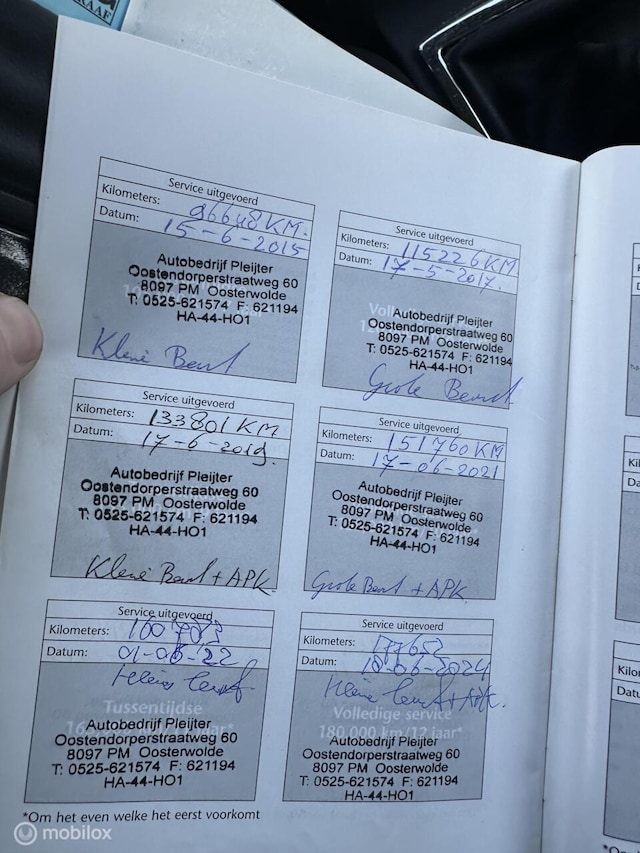 RAAF
Service uitgevoerd
Kilometers: 96648 KM.
Datum: 15-6-2015
Autobedrijf Pleijter
Oostendorperstraatweg 60
8097 PM Oosterwolde
T: 0525-621574 F: 621194
HA-44-HO1
Service uitgevoerd
Kilometers: 115226 KM
Datum: 17-5-2017.
Autobedrijf Pleijter
Oostendorperstraatweg 60
8097 PM Oosterwolde
T: 0525-621574 F: 621194
HA-44-HO1
Grote Beurt
Service uitgevoerd
Kilometers: 133801 KM
Datum: 17-6-2019.
Autobedrijf Pleijter
Oostendorperstraatweg 60
8097 PM Oosterwolde
T: 0525-621574 F: 621194
HA-44-HO1
Beurt + APK
Service uitgevoerd
Kilometers: 151760 KM
Datum: 17-06-2021
Autobedrijf Pleijter
Oostendorperstraatweg 60
8097 PM Oosterwolde
T: 0525-621574 F: 621194
HA-44-HO1
Grote Beurt + APK
Service uitgevoerd
Kilometers:
Datum: 01-06-22
Tussentijdse
Autobedrijf Pleijter
Oostendorperstraatweg 60
8097 PM Oosterwolde
T: 0525-621574 F: 621194
HA-44-HO1
Service uitgevoerd
Kilometers: 177652
Datum: 10-06-2024
Volledige service
180.000 km/12 jaar*
Autobedrijf Pleijter
Oostendorperstraatweg 60
8097 PM Oosterwolde
T: 0525-621574 F: 621194
HA-44-HO1
*Om het even welke het eerst voorkomt
mobilox